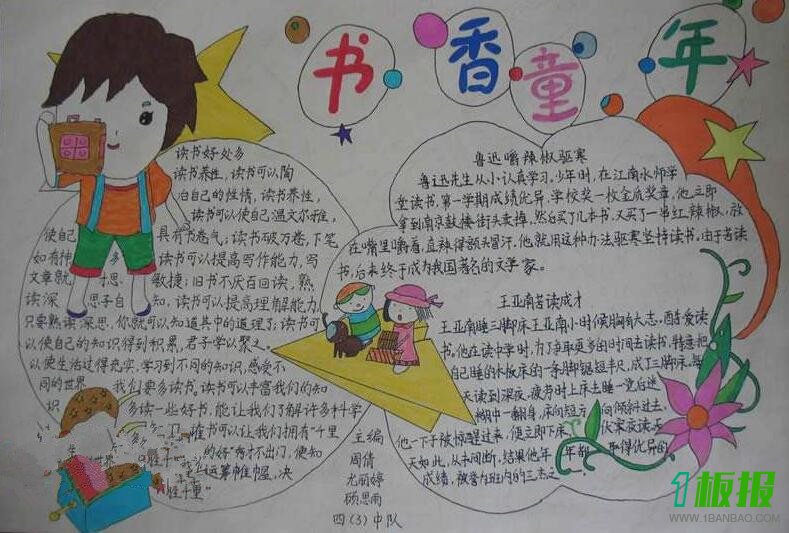 书香童年
读书好处多
读书养性，读书可以陶
冶自己的性情，读书养性，
读书可以使自己温文尔雅，
使自己 具有书卷气；读书破万卷，下笔
如有神 多 读书可以提高写作能力，写
文章就 才思 敏捷；旧书不厌百回读，熟
读深 思子自 知，读书可以提高理解能力，
只要熟读深思，你就可以知道其中的道理了；读书可
以使自己的知识得到积累，君子学以聚之。
以使生活过得充实，学习到不同的知识，感受不
同的世界 我们要多读书。读书可以丰富我们的知
识 多读一些好书，能让我们了解许多科学
读书可以让我们拥有“千里
的好 秀才不出门，便知
运筹帷幄，决
胜千里”
鲁迅嚼辣椒驱寒
鲁迅先生从小认真学习。少年时，在江南水师学
堂读书，第一学期成绩优异，学校奖一枚金质奖章。他立即
拿到南京鼓楼街头卖掉，然后买了几本书，又买了一串红辣椒，放
在嘴里嚼着，直辣得额头冒汗。他就用这种办法驱寒坚持读书。由于苦读
书，后来终于成为我国著名的文学家。
王亚南苦读成才
王亚南睡三脚床王亚南小时候胸有大志，酷爱读
书。他在读中学时，为了争取更多的时间去读书，特意把
自己睡的木板床的一条脚锯短半尺，成了三脚床。每
天读到深夜，疲劳时上床去睡一觉后迷
糊中一翻身，床向短 方向倾斜过去，
他一下子被惊醒过来，便立即下床 伏案夜读。
天如此，从未间断。结果他年 年都 取得优异的
成绩，被誉为班内的三杰之
主编
周倩
尤丽婷
顾思雨
四(3)中队
1板报
WWW.1BANBAO.COM